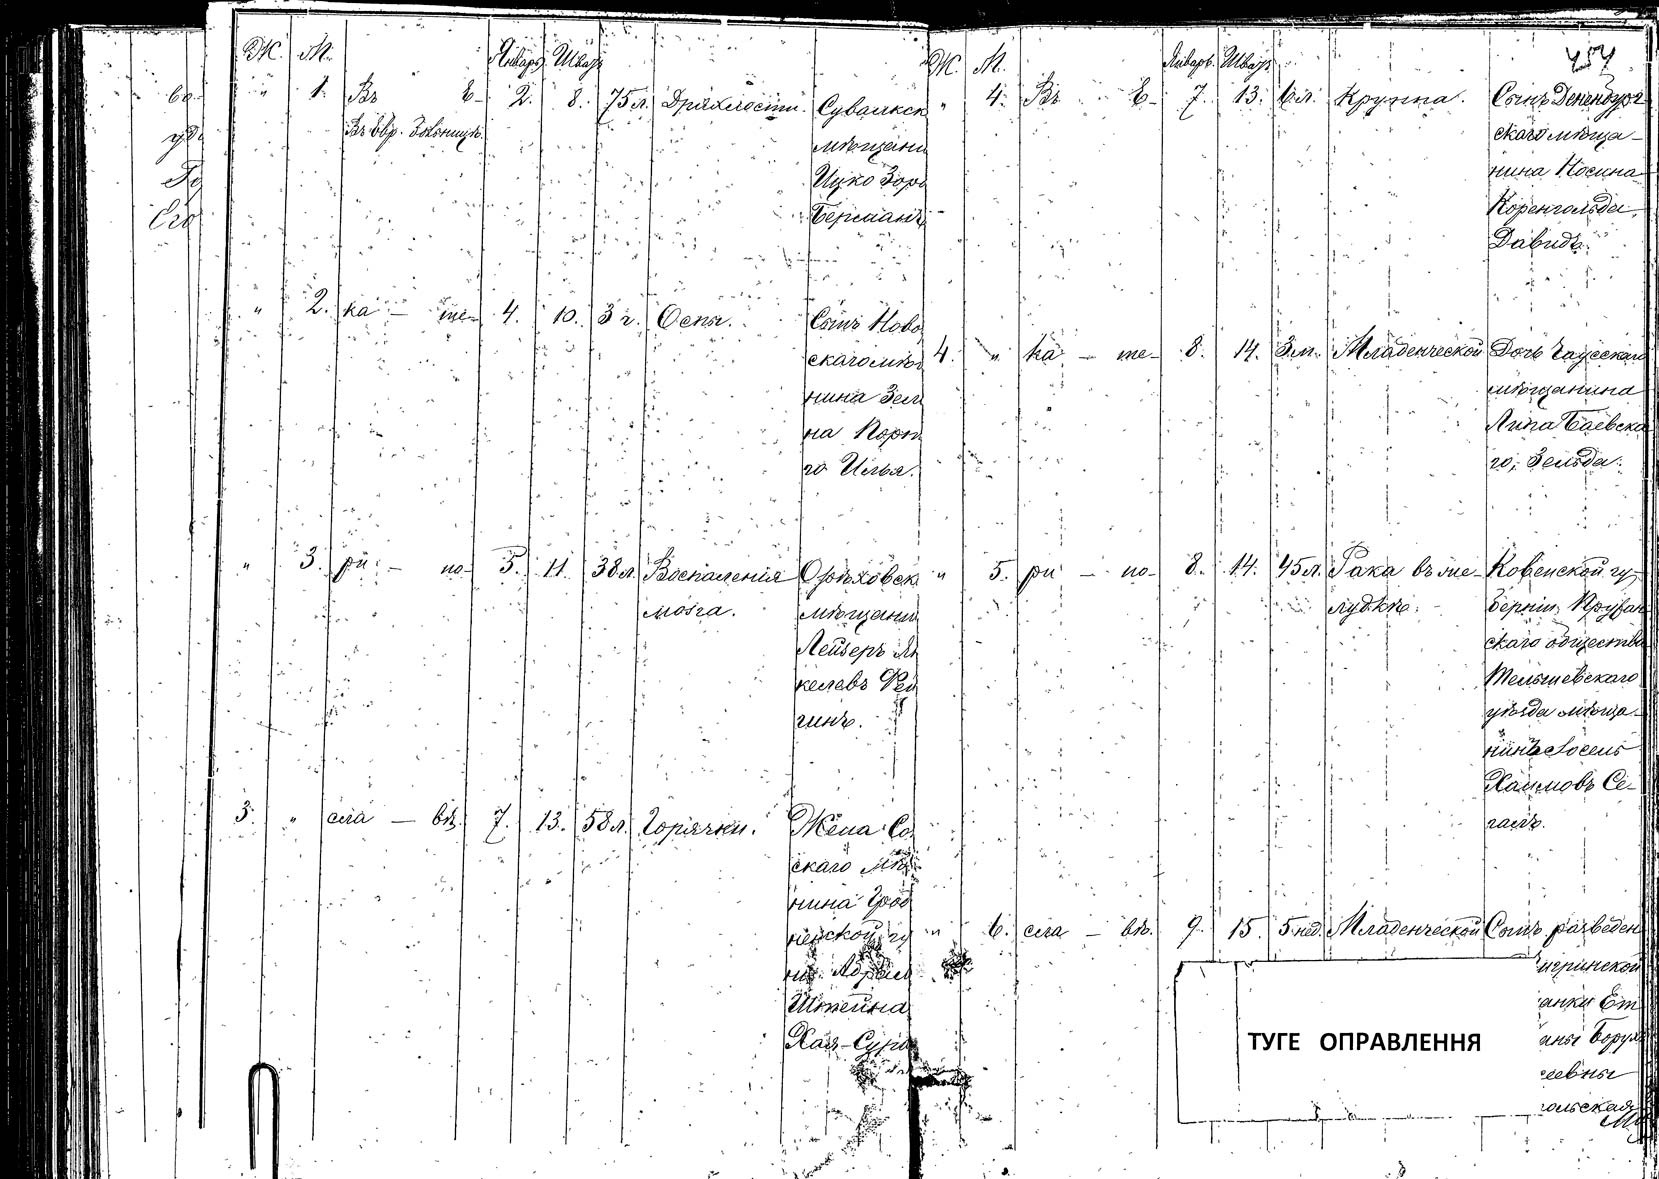 Ж. М. Январь Шватъ
" 1. Въ Е- 2. 8. 75 л. Дряхлости. Сувалкск
Въ евр. больницѣ. мѣщани
Ицко Зоро
Берманъ
" 2. ка - те- 4. 10. 3 г. Оспы. Сынъ Ново
скаго мѣщ
нина Зел
на Корн
го Илья.
" 3. ри - но- 5. 11. 38 л. Воспаленія Орѣховск
мозга. мѣщани
Лейзеръ Ян
келевъ Фей
гинъ.
3. " сла - вѣ. 7. 13. 58 л. Горячки. Жена Со
скаго мѣщ
нина Грод
ненской гу
Абрам
Штейна
Хая-Сура
454
Ж. М. Январь. Шватъ
" 4. Въ Е- 7. 13. 6 л. Круппа. Сынъ Дененбург
скаго мѣща-
нина Носина
Коренгольда,
Давидъ.
4. " ка - те- 8. 14. 3 м. Младенческой Дочь Чаусскаго
мѣщанина
Липа Баевска
го, Зельда.
" 5. ри - но- 8. 14. 45 л. Рака въ же- Ковенской гу-
лудкѣ. берніи,
скаго общества
Тельшевскаго
уѣзда мѣща-
нинъ Іосель
Хаимовъ Се-
галъ.
" 6. сла - вѣ. 9. 15. 5 нед. Младенческой Сынъ разведен
игринской
анки Ет
ины Борух
еевны
ольская
ТУГЕ ОПРАВЛЕННЯ